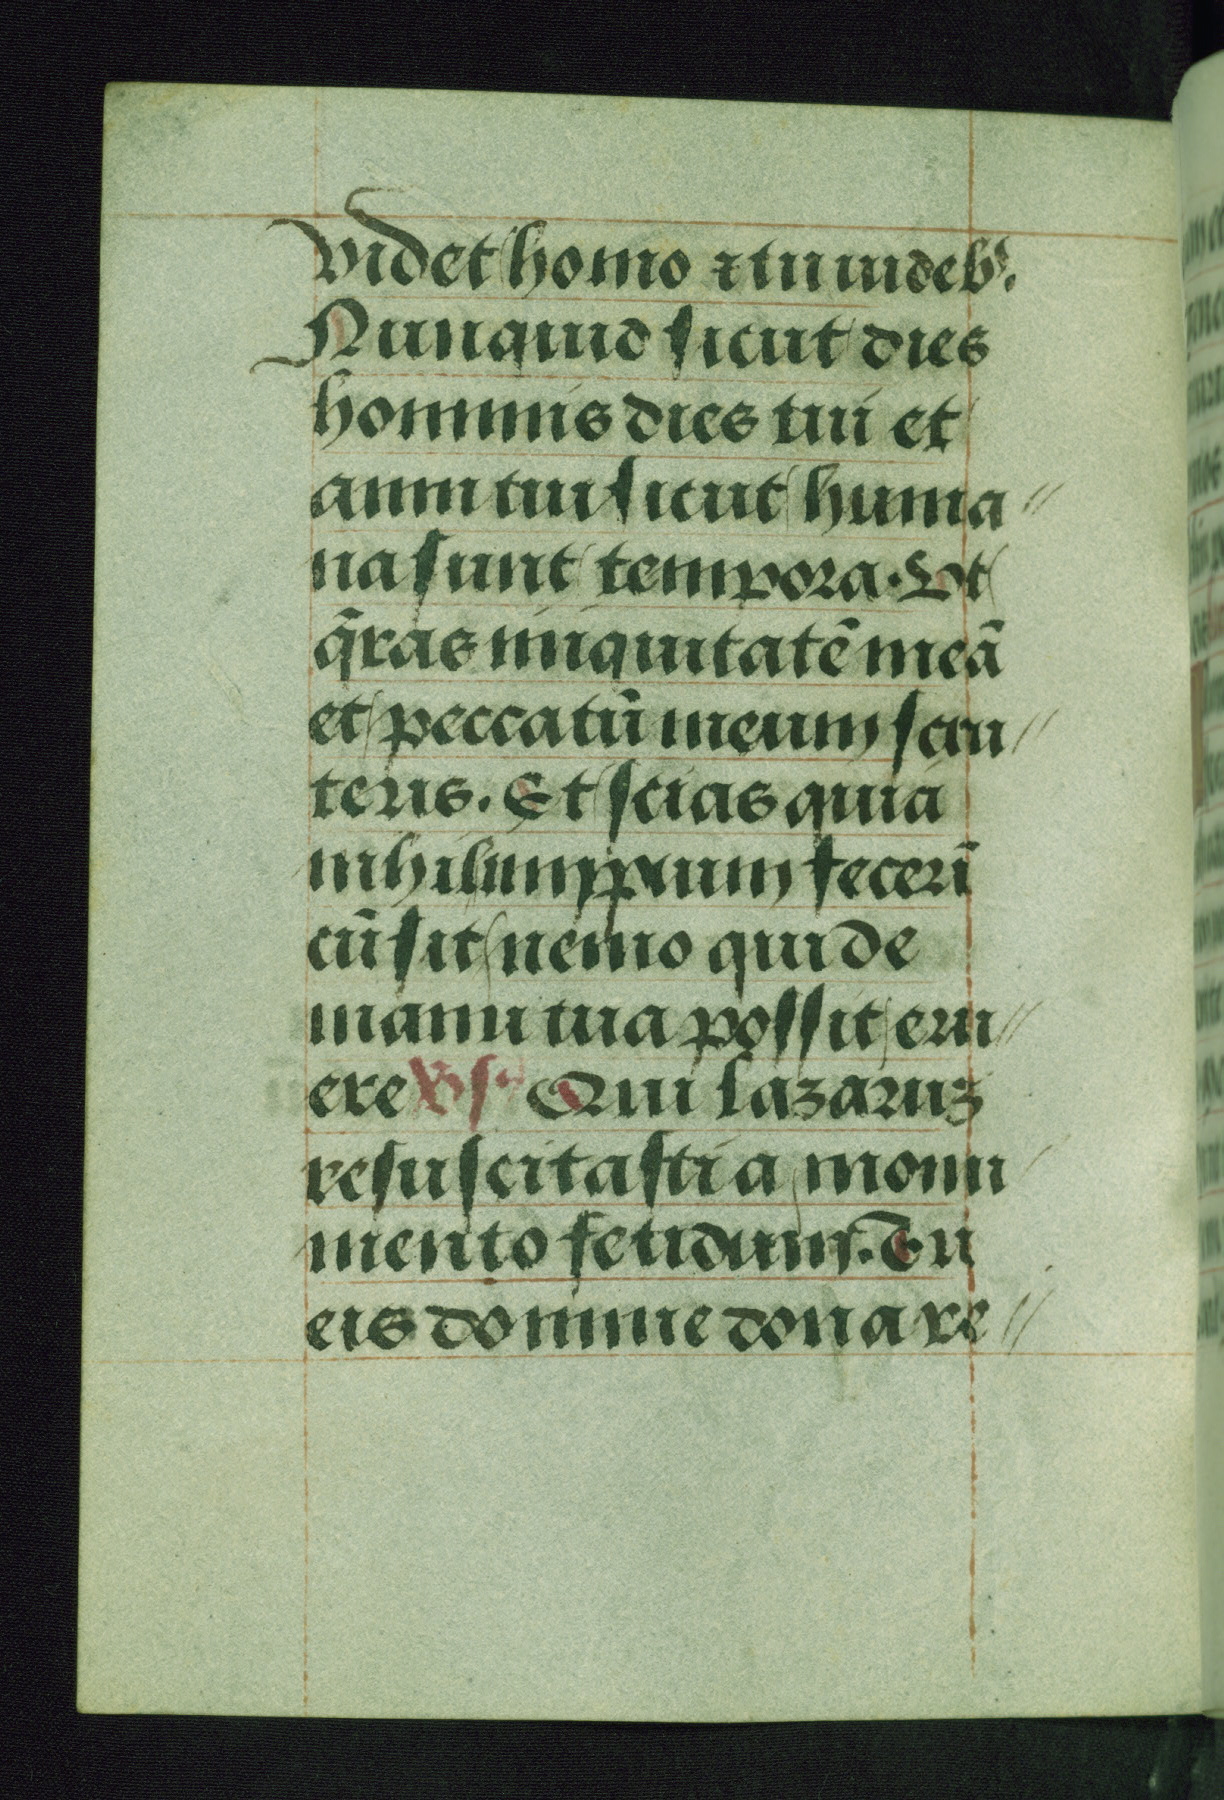 videt homo ⁊ tu uideb᷒.
Nunquid sicut dies
hominis dies tui et
anni tui sicut huma〃
na sunt tempora. Vt
q̄ras iniquitatē meā
et peccatū meum scru〃
teris. Et scias quia
nihil impium fecerī
cū sit nemo qui de
manu tua possit eru〃
ere Rs᷒ Qui lazaruʒ
resuscitasti a monu
mento fetidum. Tu
eis domine dona re〃